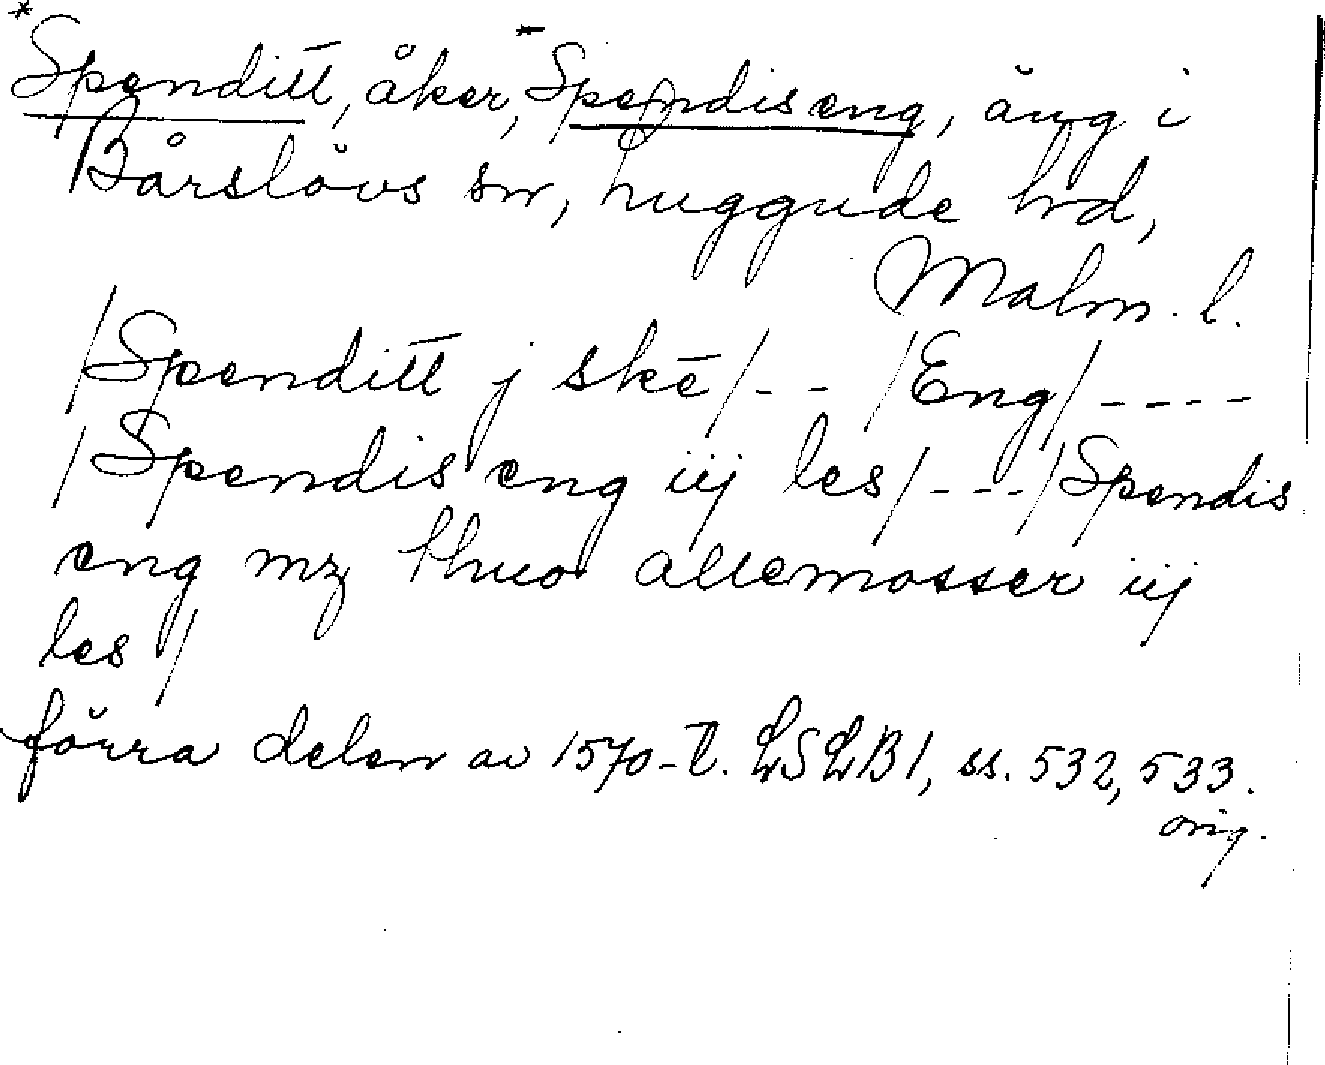 *Spenditt, åker, *Spendis eng, äng i
Bårslövs sn, Luggude hd,
Malm. l.
/Spenditt j skē/ - - /Eng/ - - - -
/Spendis eng iij les/ - - - /Spendis
eng mz thuo allemosser iij
les/
förra delen av 1570-t. LSLB1, ss. 532, 533.
orig.